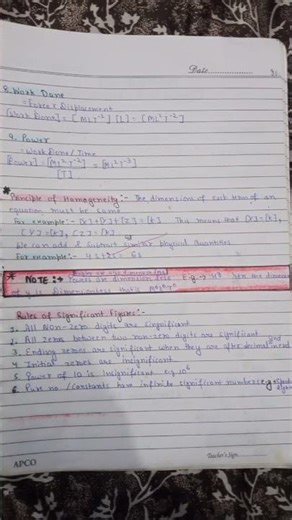 Date
8. Work Done
= Force x Displacement
[Work Done] = [MLT⁻²] [L] = [ML²T⁻²]
9. Power
= Work Done / Time
[Power] = [ML²T⁻²] = [ML²T⁻³]
[T]
Principle of Homogeneity :- The dimensions of each term of an
equation must be same
For example :- [X]+[Y]+[Z] = [k]. This means that [X]=[k],
[Y]=[k], [Z]=[k]
We can add & subtract similar physical quantities
For example :- 4s+2s = 6s
NOTE :- Powers are dimension less E.g.
of is dimensionless that's M⁰L⁰T⁰
Rules of Significant Figures :-
1. All Non-zero digits are significant
2. All zeros between two non-zero digits are significant
3. Ending zeroes are significant when they are after decimal
4. Initial zeroes are insignificant
5. Power of 10 is Insignificant e.g. 10⁶
6. Pure no./Constants have infinite significant numbers e.g.
APCO
Teacher's Sign